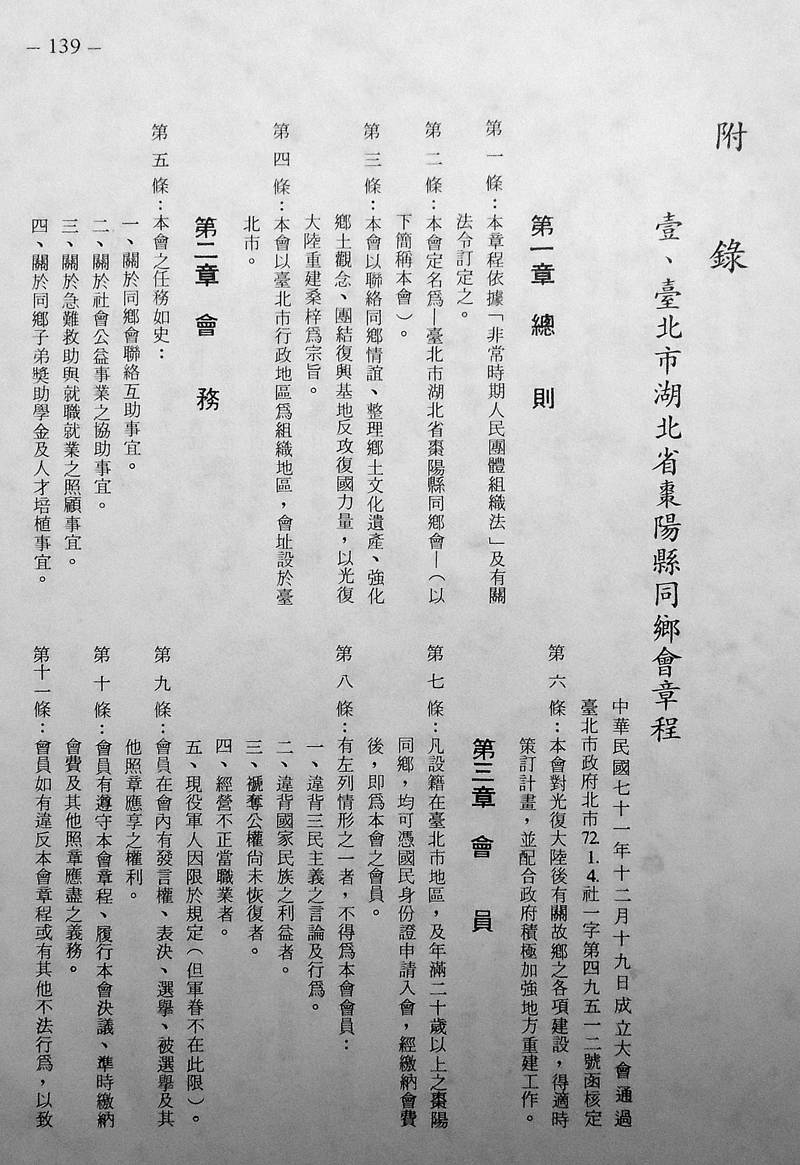 — 139 —
附錄
壹、臺北市湖北省棗陽縣同鄉會章程
中華民國七十一年十二月十九日成立大會通過
臺北市政府北市72.1.4.社一字第四九五一二號函核定
第一章 總則
第一條：本章程依據「非常時期人民團體組織法」及有關
法令訂定之。
第二條：本會定名為—臺北市湖北省棗陽縣同鄉會—（以
下簡稱本會）。
第三條：本會以聯絡同鄉情誼、整理鄉土文化遺產、強化
鄉土觀念、團結復興基地反攻復國力量，以光復
大陸重建桑梓為宗旨。
第四條：本會以臺北市行政地區為組織地區，會址設於臺
北市。
第二章 會務
第五條：本會之任務如史：
一、關於同鄉會聯絡互助事宜。
二、關於社會公益事業之協助事宜。
三、關於急難救助與就職就業之照顧事宜。
四、關於同鄉子弟獎助學金及人才培植事宜。
第六條：本會對光復大陸後有關故鄉之各項建設，得適時
策訂計畫，並配合政府積極加強地方重建工作。
第三章 會員
第七條：凡設籍在臺北市地區，及年滿二十歲以上之棗陽
同鄉，均可憑國民身份證申請入會，經繳納會費
後，即為本會之會員。
第八條：有左列情形之一者，不得為本會會員：
一、違背三民主義之言論及行為。
二、違背國家民族之利益者。
三、褫奪公權尚未恢復者。
四、經營不正當職業者。
五、現役軍人因限於規定（但軍眷不在此限）。
第九條：會員在會內有發言權、表決、選舉、被選舉及其
他照章應享之權利。
第十條：會員有遵守本會章程、履行本會決議、準時繳納
會費及其他照章應盡之義務。
第十一條：會員如有違反本會章程或有其他不法行為，以致